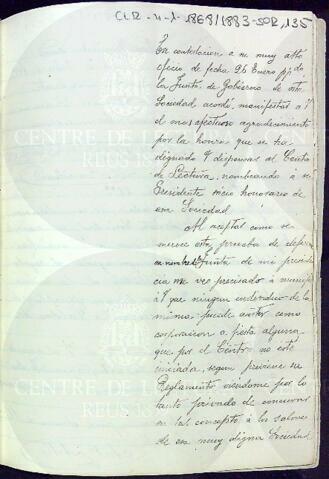 CLR-4-1-1868/1883-SOR, 135
En contestacion a su muy atto
oficio de fecha 26 Enero pp. do
la Junta de Gobierno de esta
Sociedad acordó, manifestar á V
el mas afectuoso agradecimiento
por la honra que se ha
dignado V dispensar al Centro
de Lectura, nombrando á su
Presidente sócio honorario de
esa Sociedad.
Al aceptar como se
merece esta prueba de defere
en nombre la Junta de mi presiden
cia me veo precisado á manifes
á V que ningun individuo de la
misma puede asistir como
corporacion a fiesta alguna
que por el Centro no esté
iniciada, segun previene su
Reglamento viendome por lo
tanto privado de concurrir
en tal concepto á los salones
de esa muy digna Sociedad
CENTRE DE LECTURA
REUS 18
CENTRE DE LECTURA
REUS 18